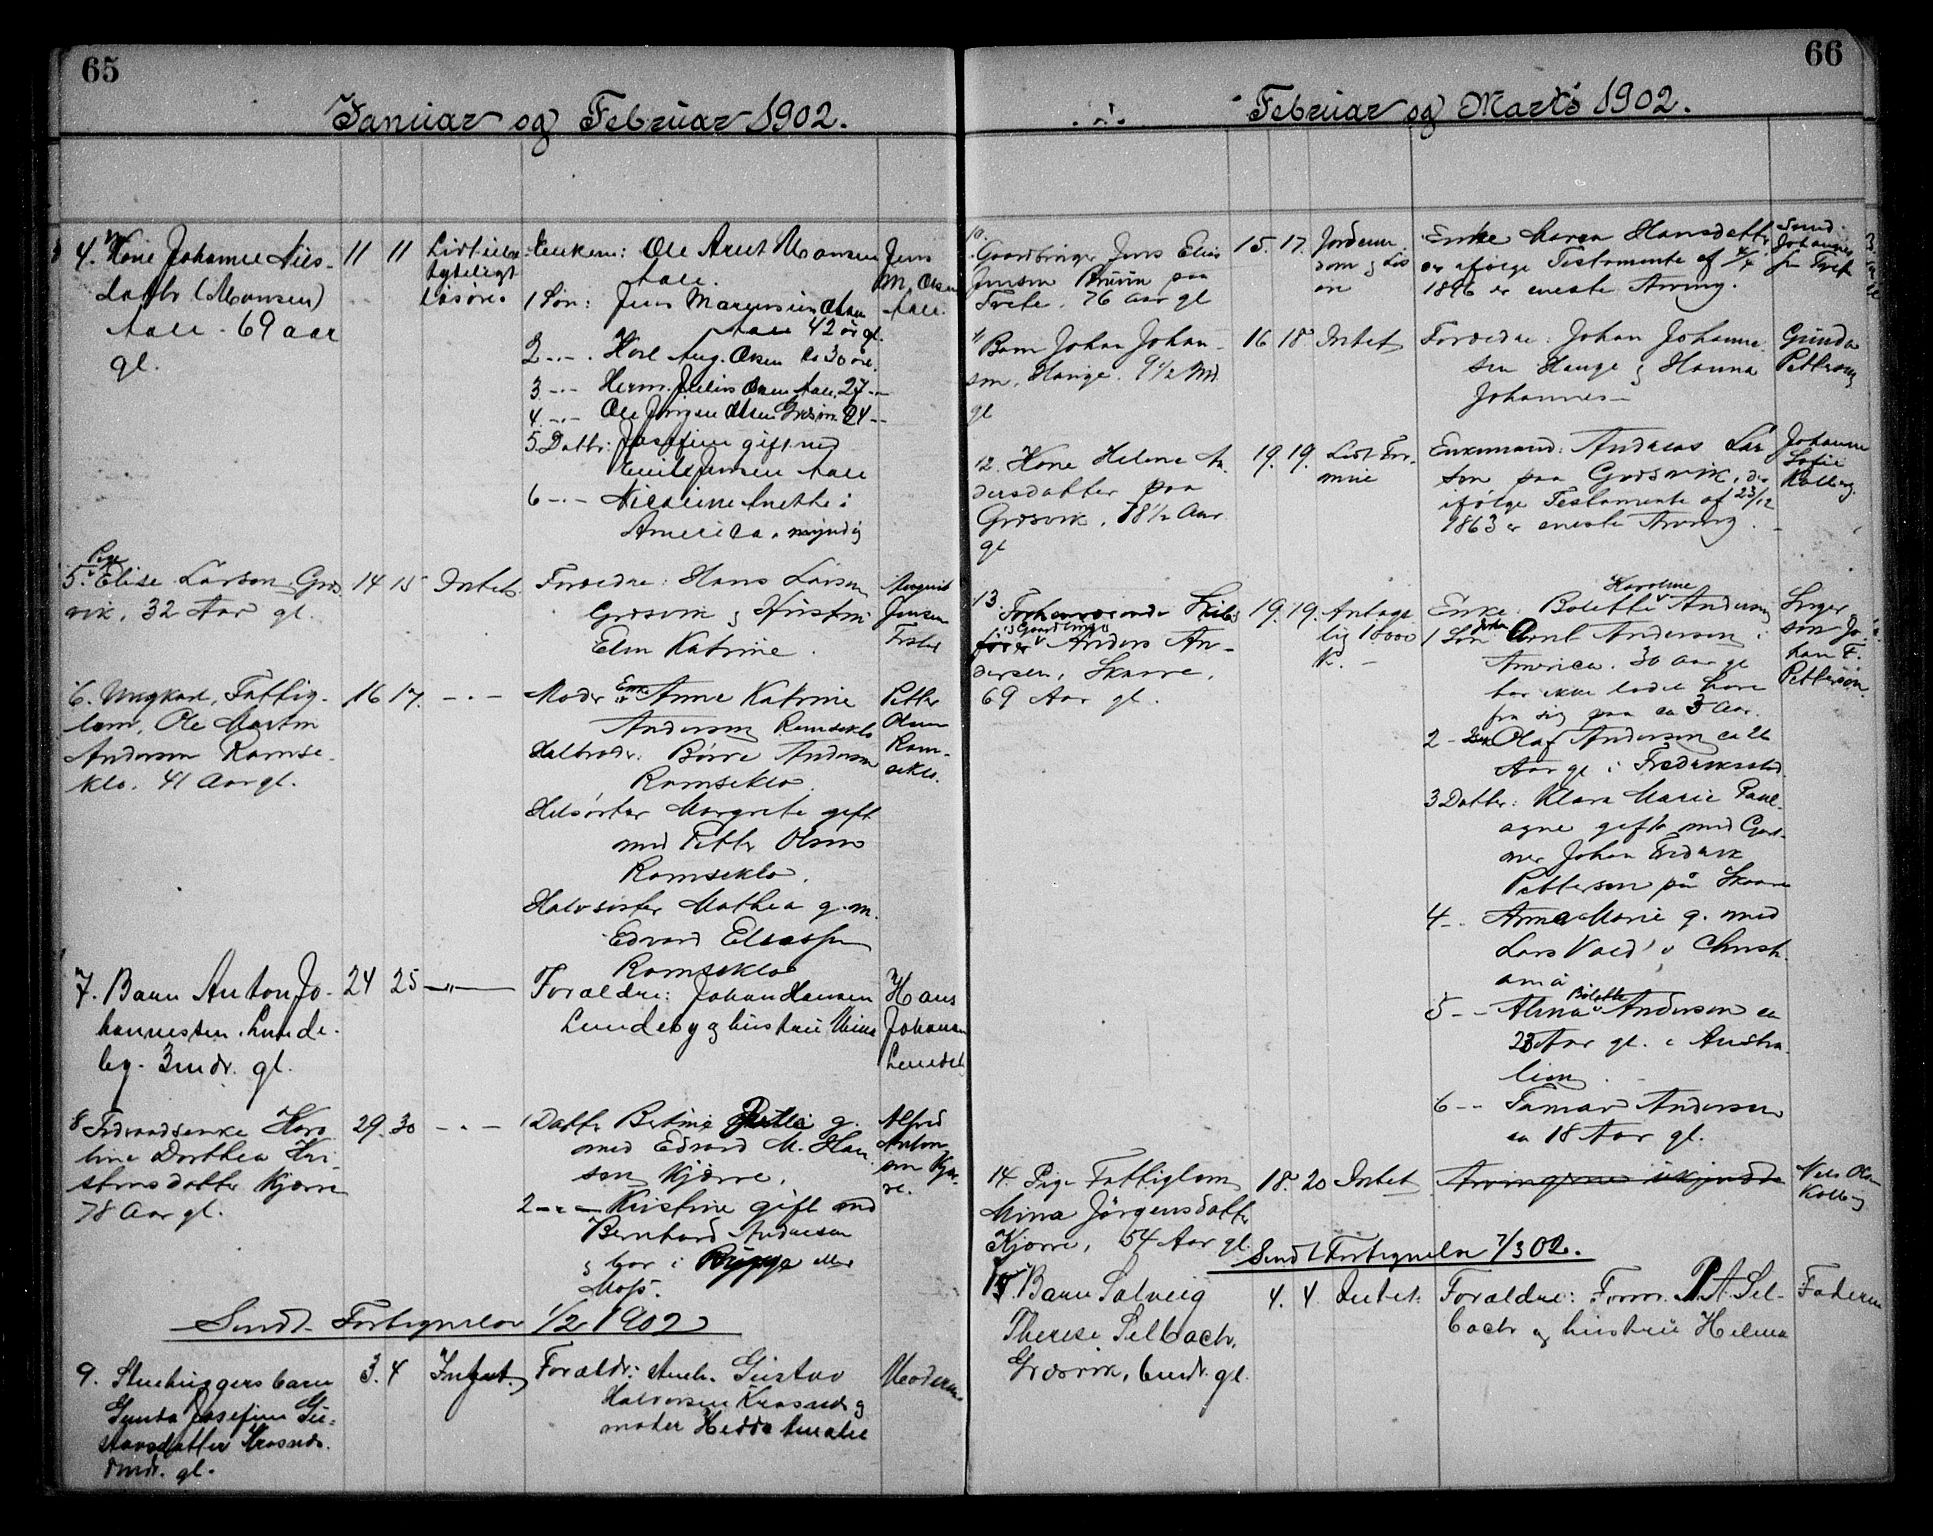 65
Januar og Februar 1902.
4. Kone Johanne Nils-
datter (Monsen)
Aale. 69 aar
gl.
11 11
Lidt
Løsøre
Enkem: Ole Arnt Monsen
Aale.
1 Søn: Jens Olsen
Aale 42 år gl.
2 -.- Karl Aug. Olsen 30 år.
3 -.- Herm. Julius Olsen Aale, 27 -
4 -.- Ole Jørgen Olsen Græsvik 24 -
5. Datter: Josefine gift med
Emil Jensen Aale
6 -.- Nicoline Anette i
America, myndig
Jens
M. Olsen
Aale.
Pige
5. Elise Larsen Græs-
vik, 32 Aar gl.
14 15 Intet
Foreldre: Hans Larsen
Græsvik og Hustru
Elen Katrine.
Jensen
6. Ungkarl, Fattig-
lem, Ole Martin
Andersen Ramse-
klo. 41 Aar gl.
16 17. -.-
Moder Enke Anne Katrine
Andersen Ramseklo
Halbroder: Børre Andersen
Ramseklo.
Margrete gift
med Petter Olsen
Ramseklo.
Halvsøster Mathea g. m.
Edvard Eliassen
Ramseklo
Petter
Olsen
Ram-
seklo.
7. Barn Anton Jo-
hannessen. Lunde-
by. 3 mdr. gl.
24 25 -"-
Foraldre: Johan Hansen
Lundeby og hustru Mina
Hans
Johansen
Lundeby
8. Forraadsenke Karo
line Dorthea Kri-
stensdatter Kjørre
78 Aar gl.
29. 30 -.-
1 Datter Bertine g.
med Edvard M. Han-
sen Kjørre.
2 -.- Kristine gift med
Bernhard Andresen
og bor i Rygge eller
Moss.
Alfred
Anton-
sen Kjør-
re.
Sendt Fortegnelse 1/2 1902
9. Stenhuggers barn
Gunda Josefine Gu-
stavsdatter Krosnes.
mdr. gl.
3. 4 Intet.
Foraldr: Stenh. Gustav
Halvorsen Krosnes og
moder Hedda Amalie
Moderen
66
Februar og Marts 1902.
10.
Gaardbruger Jens Elias
Jensen Bruun paa
Tvete, 76 Aar gl
15. 17. Jordeien-
dom og Løs
øre
Enke Maren Hansdatter
er ifølge Testamente af 4/4
1896 er eneste Arving.
Johannes
11
Barn Johan Johan-
sen, Hauge. 9 1/2 Md.
gl
16 18 Intet
Foreldre: Johan Johanne-
sen Hauge og Hanna
Johannes-
Gunda
Petterson
12. Kone Helene An-
dersdatter paa
Græsvik, 78 1/2 Aar
gl
19. 19. Lidt For-
mue
Enkemand: Andreas Lar
sen paa Græsvik, der
ifølge Testamente af 23/12
1863 er eneste Arving.
Johanne
Sofie
Kolberg.
13. Forhenværende Skibs
Gaardbruger
fører Anders An-
dersen, Skaare,
69 Aar gl.
19. 19. Antage-
lig 10000
K. -
Enke: Bolette Karoline Andersen
1 Søn John Arnt Andersen i
America. 30 Aar gl
har ikke ladet høre
fra sig paa ca 5 Aar.
2 - Olaf Andersen ca 26
Aar gl i Fredriksstad.
3 Datter: Klara Marie Paul-
agne gift med Gart-
ner Johan Fredrik
Pettersen på Skaare
4 -- Anna Marie g. med
Lars Vold i Christi-
ania
5 -- Alma Bolette Andersen ca
23 Aar gl. i Austra-
lien.
6 -- Tamar Andersen
ca 18 Aar gl.
Johan F.
Pettersen.
14. Pige Fattiglem
Mina Jørgensdatter
Kjørre, 54 Aar gl.
18. 20 Intet
Arvingerne ukjendte
Nels Olsen
Kolberg
Sendt Fortegnelse 7/3 02.
15. Barn Solveig
Therese Selbach,
Græsvik, 6 mdr. gl.
4. 4. Intet.
Foraldre: Form. P. A. Sel-
bach og hustru Helma
Faderen